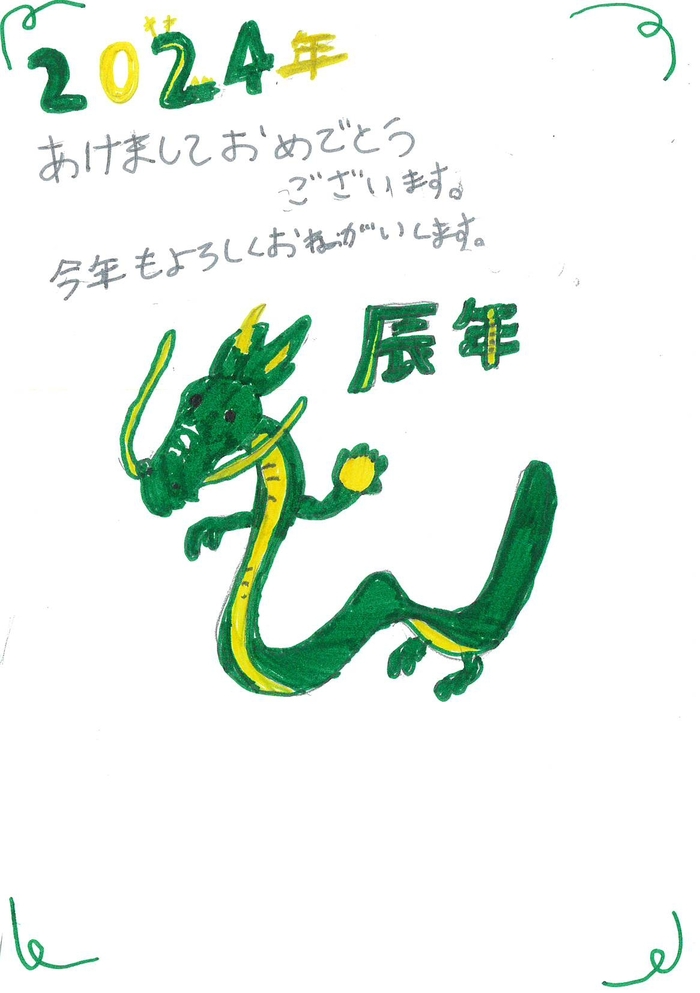 2024年
あけましておめでとう
ございます。
今年もよろしくおねがいします。
辰年